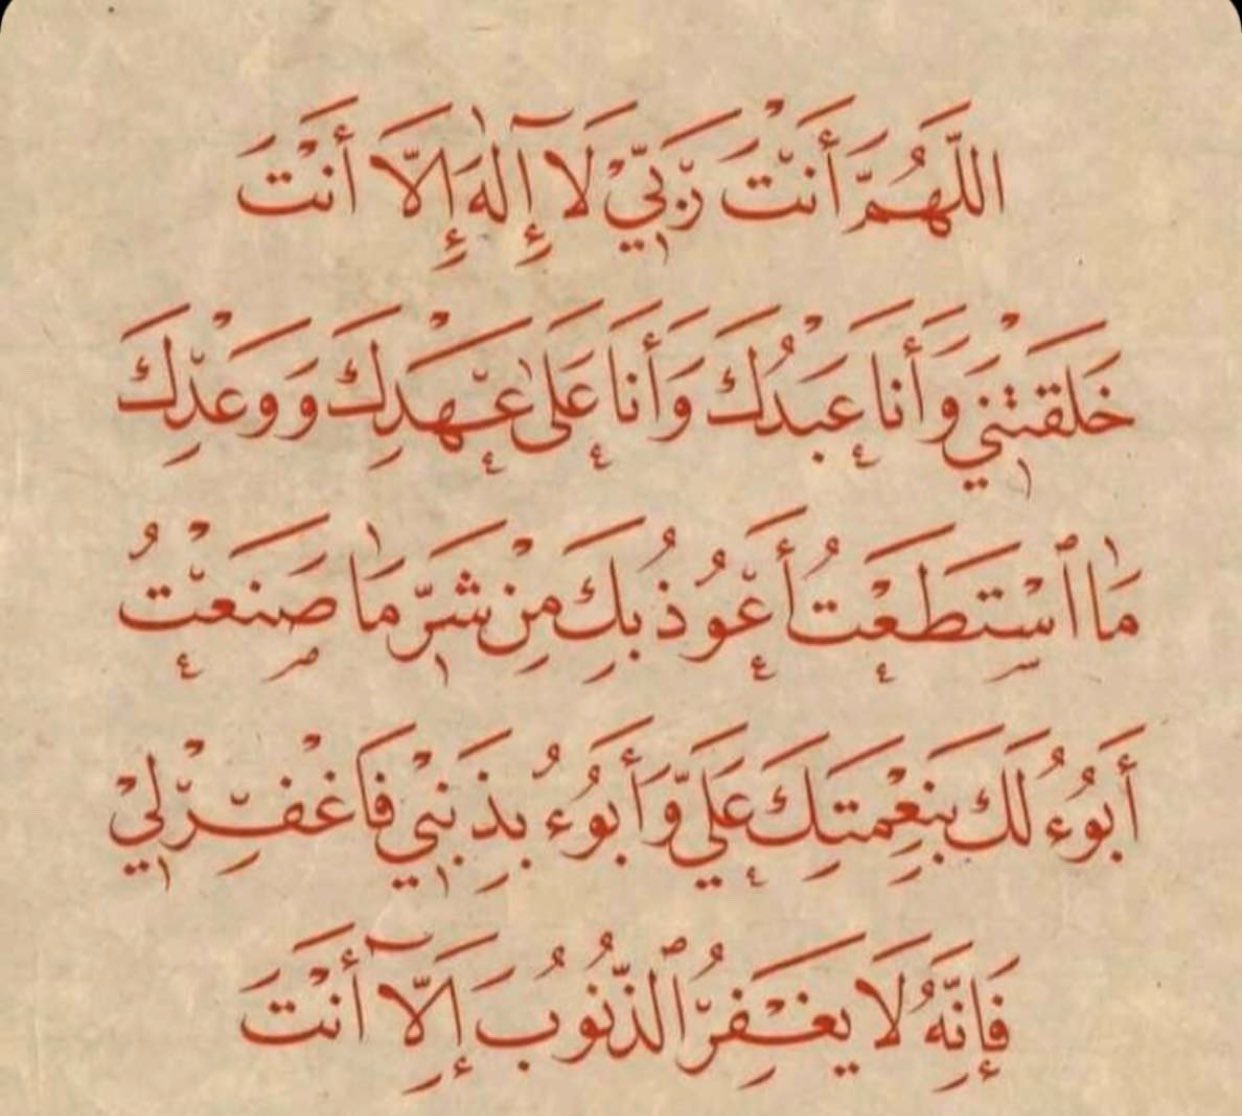 اللَّهُمَّ أَنْتَ رَبِّيْ لَآ إِلٰهَ إِلَّا أَنْتَ
خَلَقْتَنِيْ وَأَنَا عَبْدُكَ وَأَنَا عَلَىٰ عَهْدِكَ وَوَعْدِكَ
مَا ٱسْتَطَعْتُ أَعُوذُ بِكَ مِنْ شَرِّ مَا صَنَعْتُ
أَبُوُءُ لَكَ بِنِعْمَتِكَ عَلَيَّ وَأَبُوُءُ بِذَنْبِيْ فَاغْفِرْ لِيْ
فَإِنَّهُ لَا يَغْفِرُ ٱلذُّنُوبَ إِلَّآ أَنْتَ